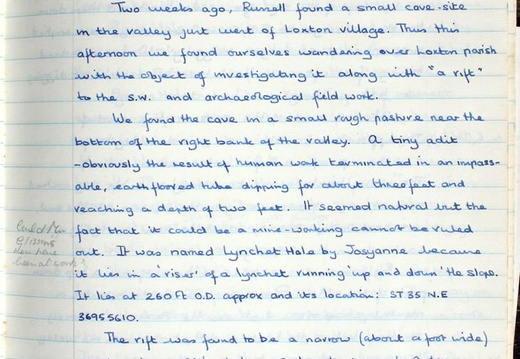 Two weeks ago, Russell found a small cave-site
in the valley just west of Loxton village. Thus this
afternoon we found ourselves wandering over Loxton parish
with the object of investigating it along with "a rift"
to the s.w. and archaeological field work.
We found the cave in a small rough pasture near the
bottom of the right bank of the valley. A tiny adit
-obviously the result of human work terminated in an impass-
able, earth floored tube dipping for about three feet and
reaching a depth of two feet. It seemed natural but the
fact that it could be a mine-working cannot be ruled
out. It was named Lynchet Hole by Josyanne because
it lies in a 'riser' of a lynchet running 'up and down' the slope.
It lies at 260 Ft O.D. approx and its location: ST 35 N.E
36955610.
The rift was found to be a narrow (about a foot wide)